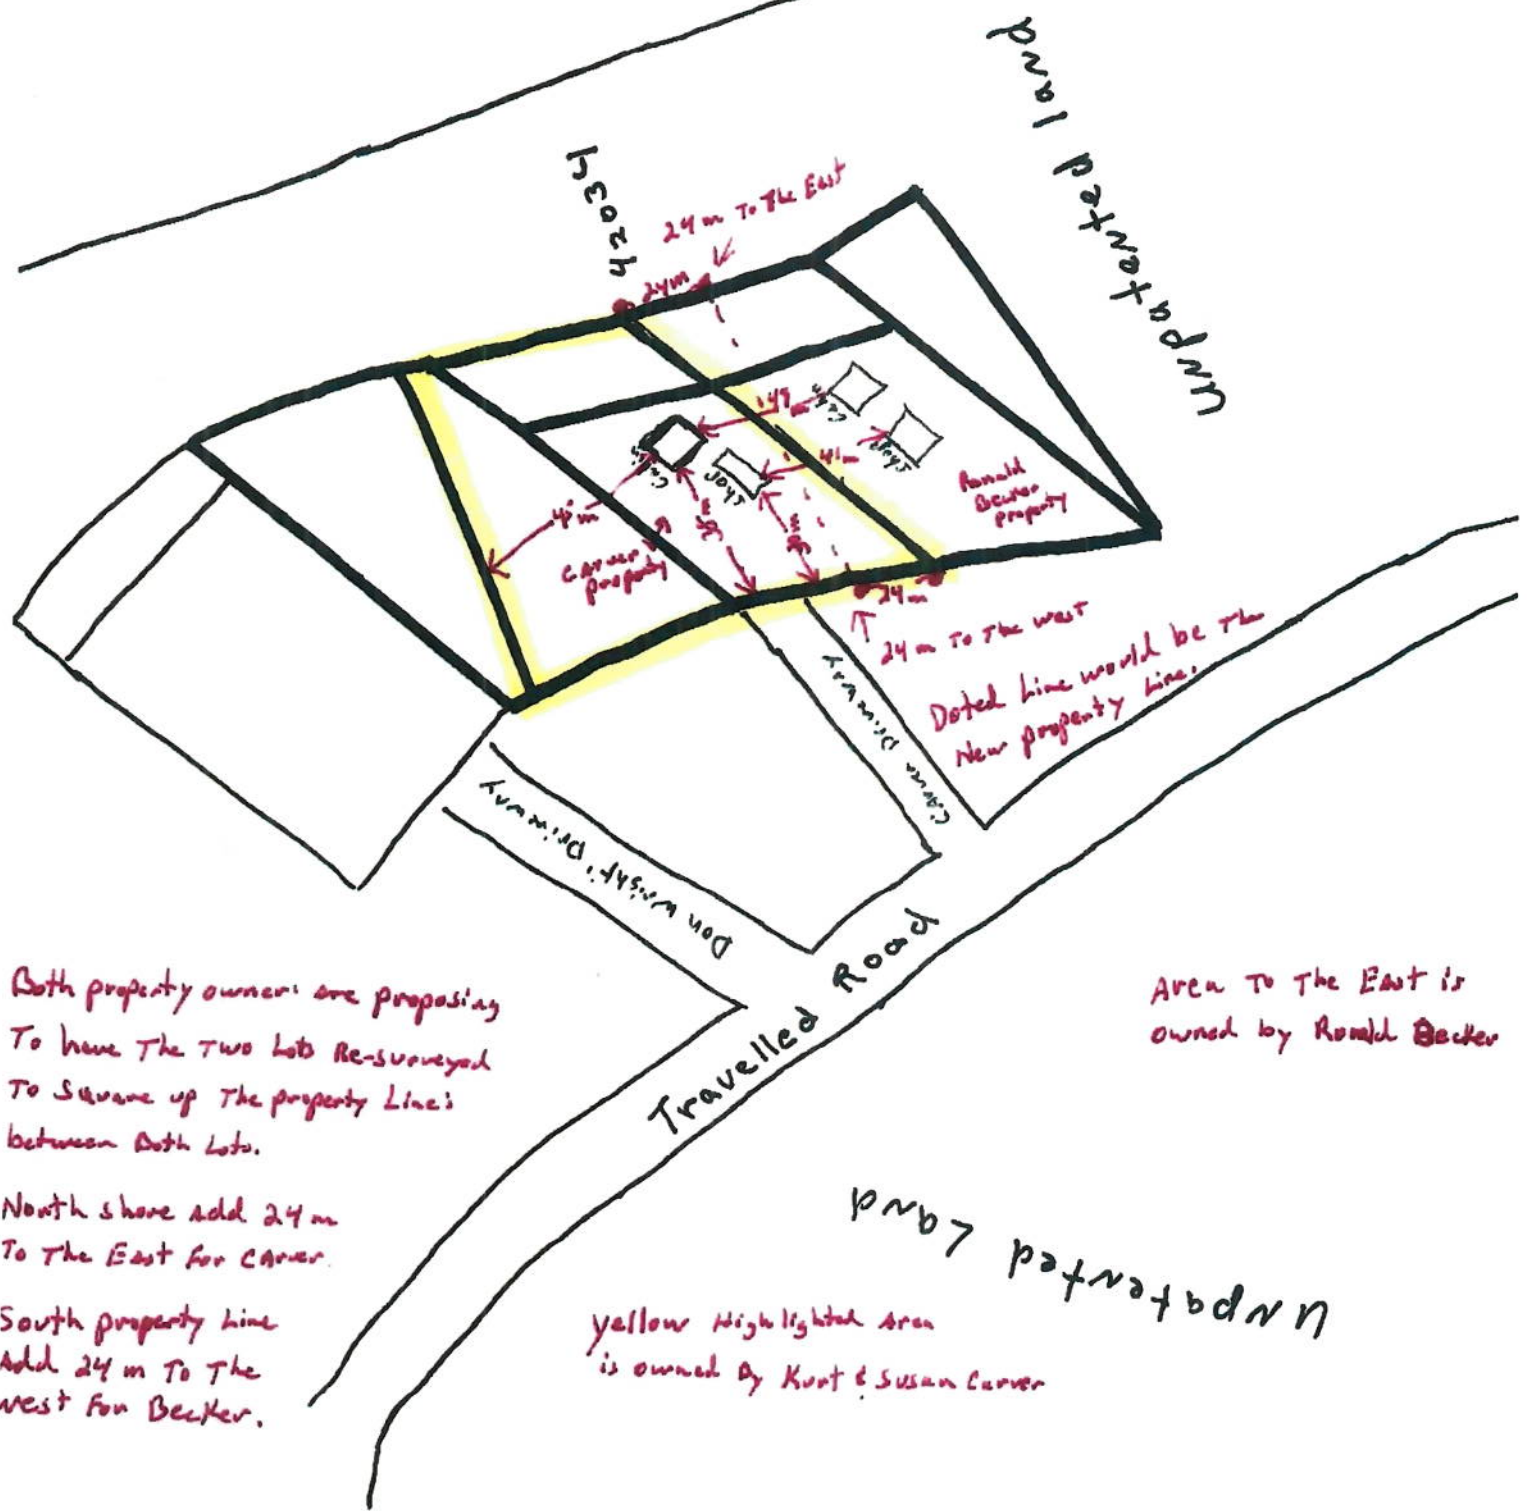 unpatented land
42034
24 m To The East
24m
149
m
Cabin
Shop
41m
Ronald
Becker
property
Cabin
Shop
41
m
38m
38m
Carver
property
24m
24 m To The west
Doted Line would be The
New property Line.
Carver Driveway
Don wright's Driveway
Travelled Road
Both property owners are proposing
To have The Two Lots Re-surveyed
To Square up The property Lines
between Both Lots.
North shore Add 24 m
To The East For Carver.
South property Line
Add 24 m To The
west For Becker.
Area To The East is
owned by Ronald Becker
Unpatented Land
yellow Highlighted Area
is owned By Kurt & Susan Carver